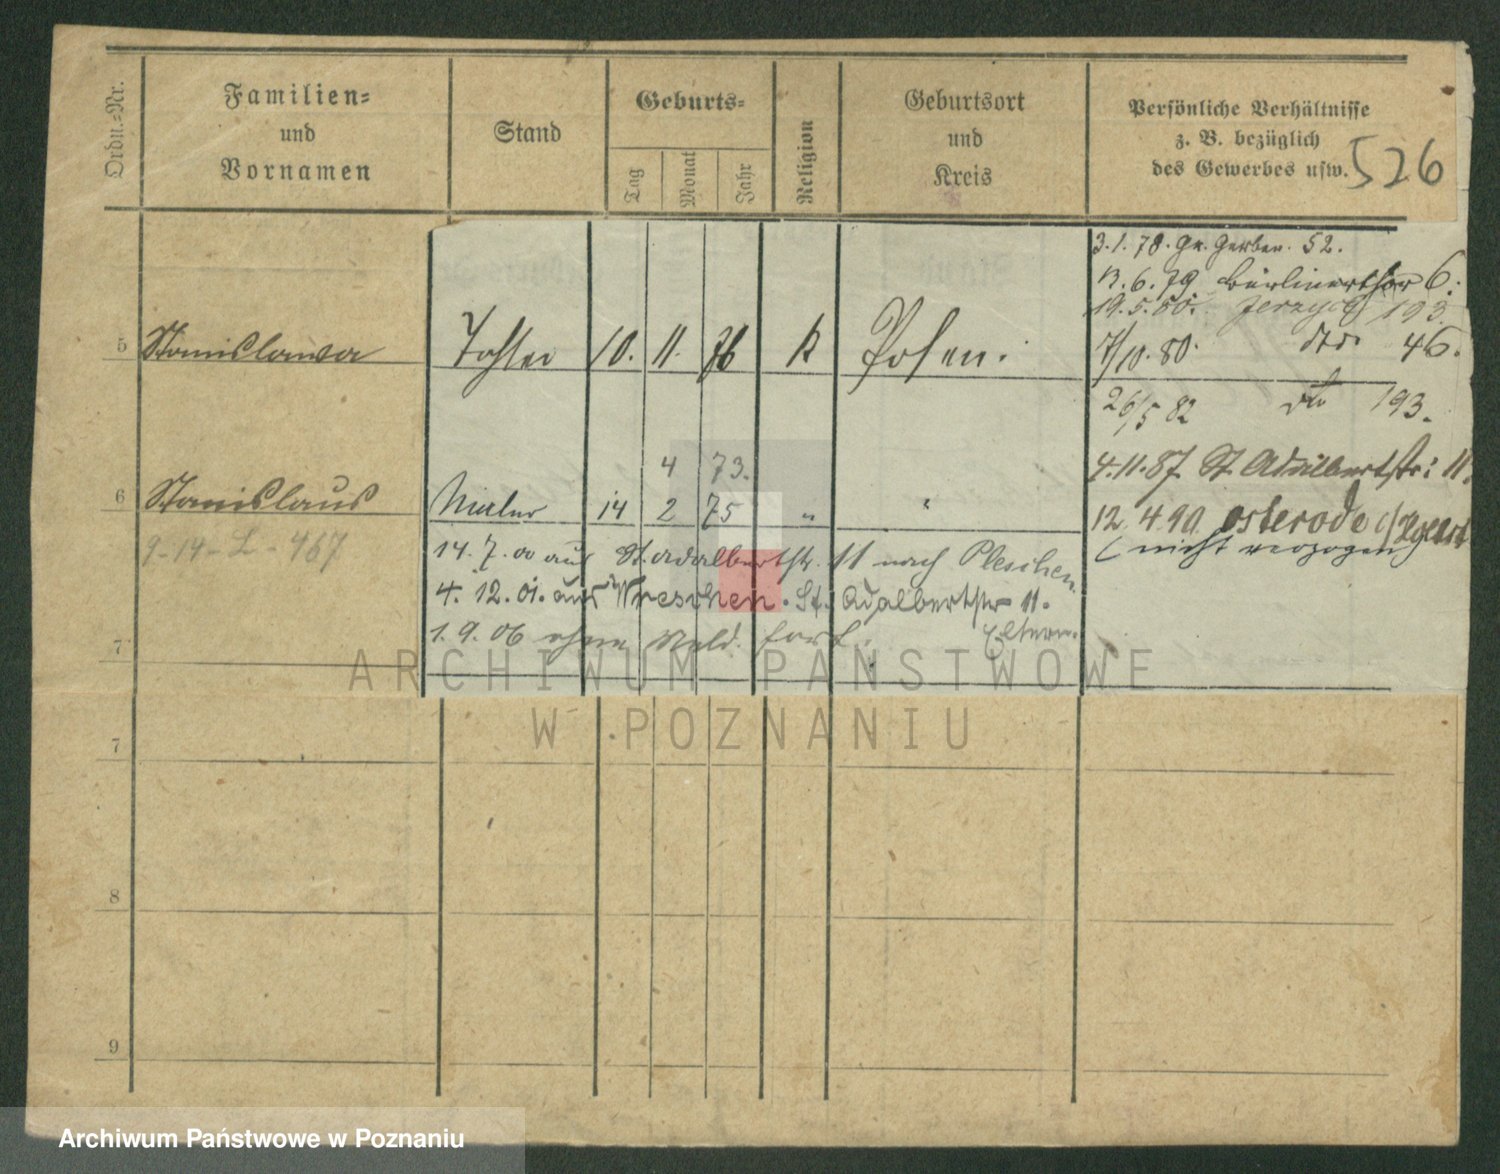 Ordn.-Nr.
Familien-
und
Vornamen
Stand
Geburts-
Tag
Monat
Jahr
Religion
Geburtsort
und
Kreis
Persönliche Verhältnisse
z. B. bezüglich
des Gewerbes usw.
526
3.1.78. Gr. Gerber. 52.
13.6.79 Berlinerthor 6.
19.5.80. Jerzyce 193.
5 Stanislawa Tochter 10. 11. 76 K Posen.
7/10.80. dto 46.
26/5 82 dto 193.
4 73.
4.11.87 St. Adalbertstr. 11.
6 Stanislaus 14 2 75 " "
12.4.90 Osterode
(nicht verzogen)
9-14-L-467
14.7.00 aus St. Adalbertstr. 11 nach Pleschen.
4.12.01. aus Wreschen. St. Adalbertstr 11.
Eltern.
1.9.06 ohne Meld. fort.
7
7
8
9
ARCHIWUM PAŃSTWOWE
W POZNANIU
Archiwum Państwowe w Poznaniu